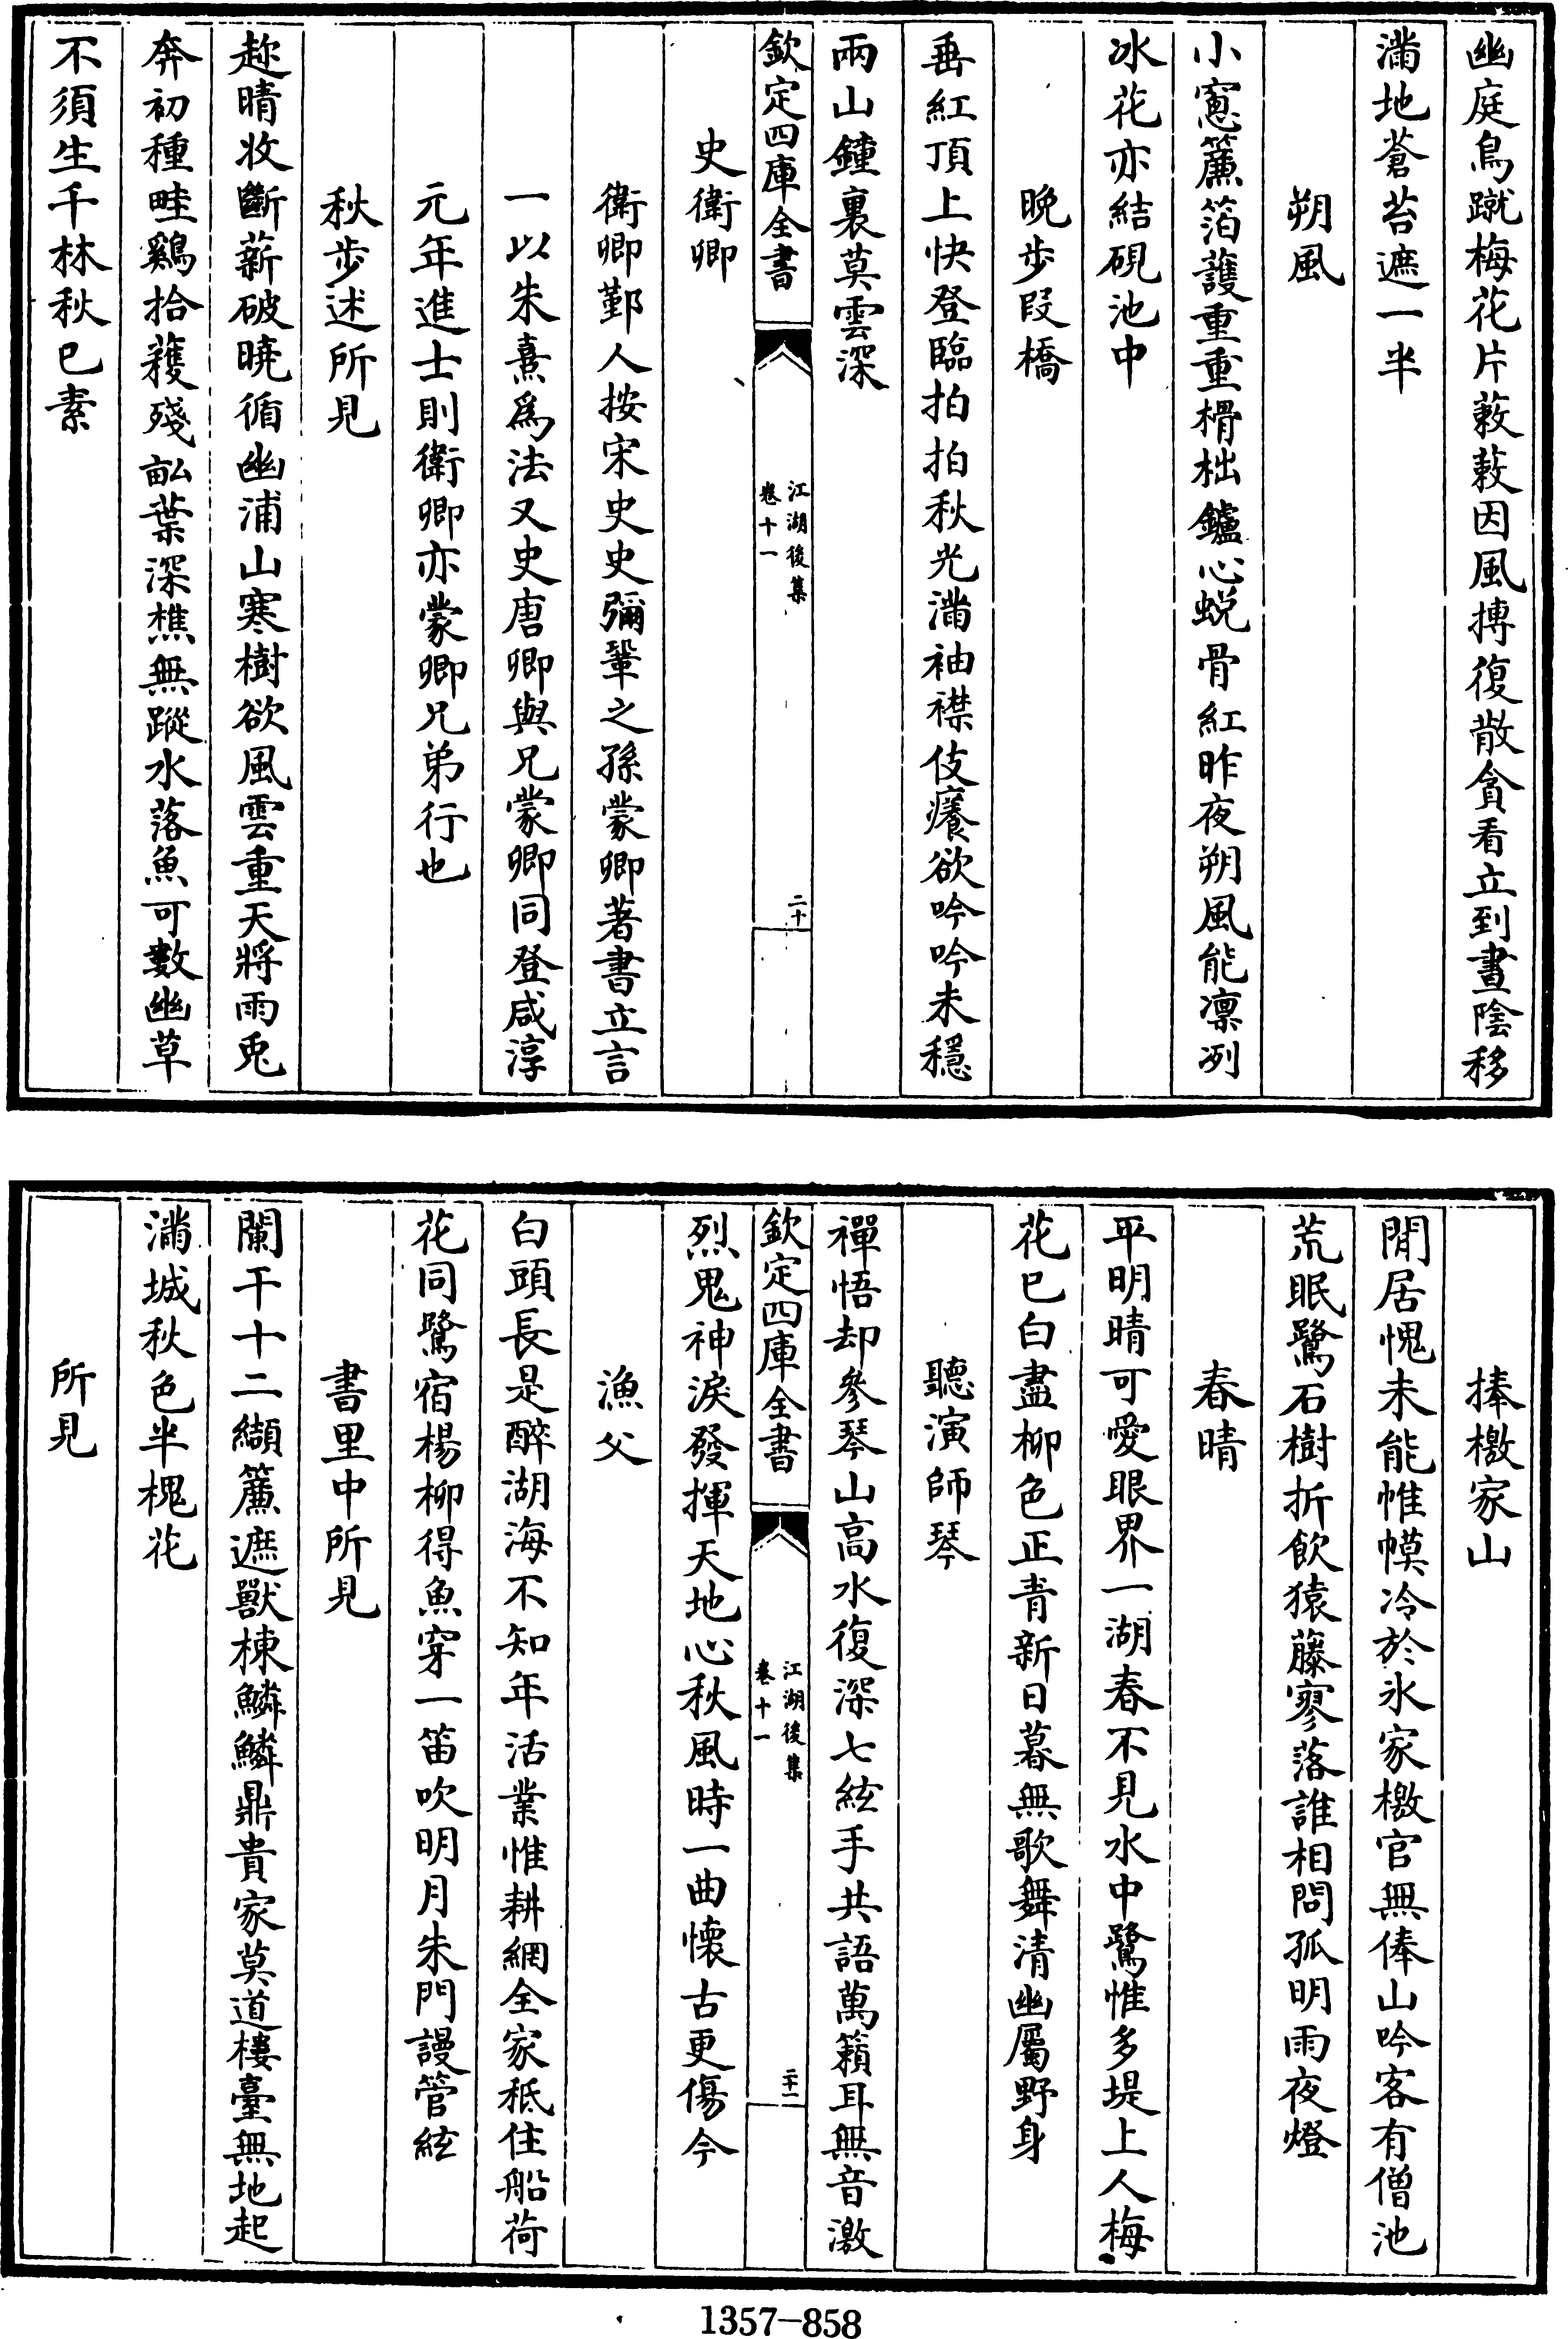 幽庭鳥蹴梅花片蔌蔌因風摶復散貪看立到晝陰移
滿地蒼苔遮一半
朔風
小窻簾箔䕶重重榾柮鑪心蜕骨紅昨夜朔風能凛冽
冰花亦結硯池中
晚步段橋
垂紅頂上快登臨拍拍秋光滿袖襟伎癢欲吟吟未穩
兩山鐘裏莫雲深
欽定四庫全書
江湖後集
卷十一
二十
史衛卿
衛卿鄞人按宋史史彌鞏之孫蒙卿著書立言
一以朱熹爲法又史唐卿與兄蒙卿同登咸淳
元年進士則衛卿亦蒙卿兄弟行也
秋步述所見
趂晴收斷薪破曉循幽浦山寒樹欲風雲重天將雨兎
奔初種畦鷄拾穫殘畝葉深樵無蹤水落魚可數幽草
不須生千林秋巳素
捧檄家山
閒居愧未能惟幙冷於氷家檄官無俸山吟客有僧池
荒眠鷺石樹折飲猿藤寥落誰相問孤明雨夜燈
春晴
平明晴可愛眼界一湖春不見水中鷺惟多堤上人梅
花巳白盡柳色正青新日暮無歌舞清幽屬野身
聽演師琴
禪悟却參琴山高水復深七絃手共語萬籟耳無音激
欽定四庫全書
江湖後集
卷十一
二十一
烈鬼神淚發揮天地心秋風時一曲懷古更傷今
漁父
白頭長是醉湖海不知年活業惟耕網全家秪住船荷
花同鷺宿楊柳得魚穿一笛吹明月朱門謾管絃
書里中所見
闌干十二纈簾遮獸棟鱗鱗鼎貴家莫道樓臺無地起
滿城秋色半槐花
所見
1357-858